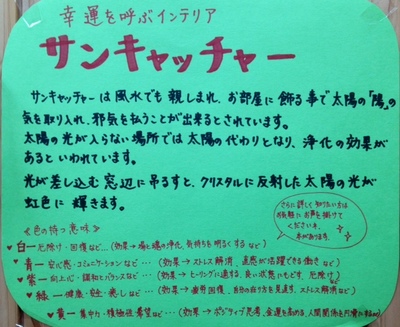 幸運を呼ぶインテリア
サンキャッチャー
サンキャッチャーは風水でも親しまれ、お部屋に飾る事で太陽の「陽」の
気を取り入れ、邪気を払うことが出来るとされています。
太陽の光が入らない場所では太陽の代わりとなり、浄化の効果が
あるといわれています。
光が差し込む窓辺に吊るすと、クリスタルに反射した太陽の光が
虹色に輝きます。
さらに詳しく知りたい方は
お気軽にお声を掛けて
くださいネ。
《色の持つ意味》
♥白―厄除け・回復など…(効果→場と魂の浄化、気持ちを明るくするなど)
♥青―安心感・コミュニケーションなど…(効果→ストレス解消、直感が活躍できる働きなど)
♥紫―向上心・調和とバランスなど…(効果→ヒーリングに適する、良い状態にもどす、厄除けなど)
♥緑―健康・安全・癒しなど…(効果→疲労回復、自分の在り方を見直す、ストレス解消など)
♥黄―集中力・積極性・希望など…(効果→ポジティブ思考、金運を高める、人間関係を円滑に